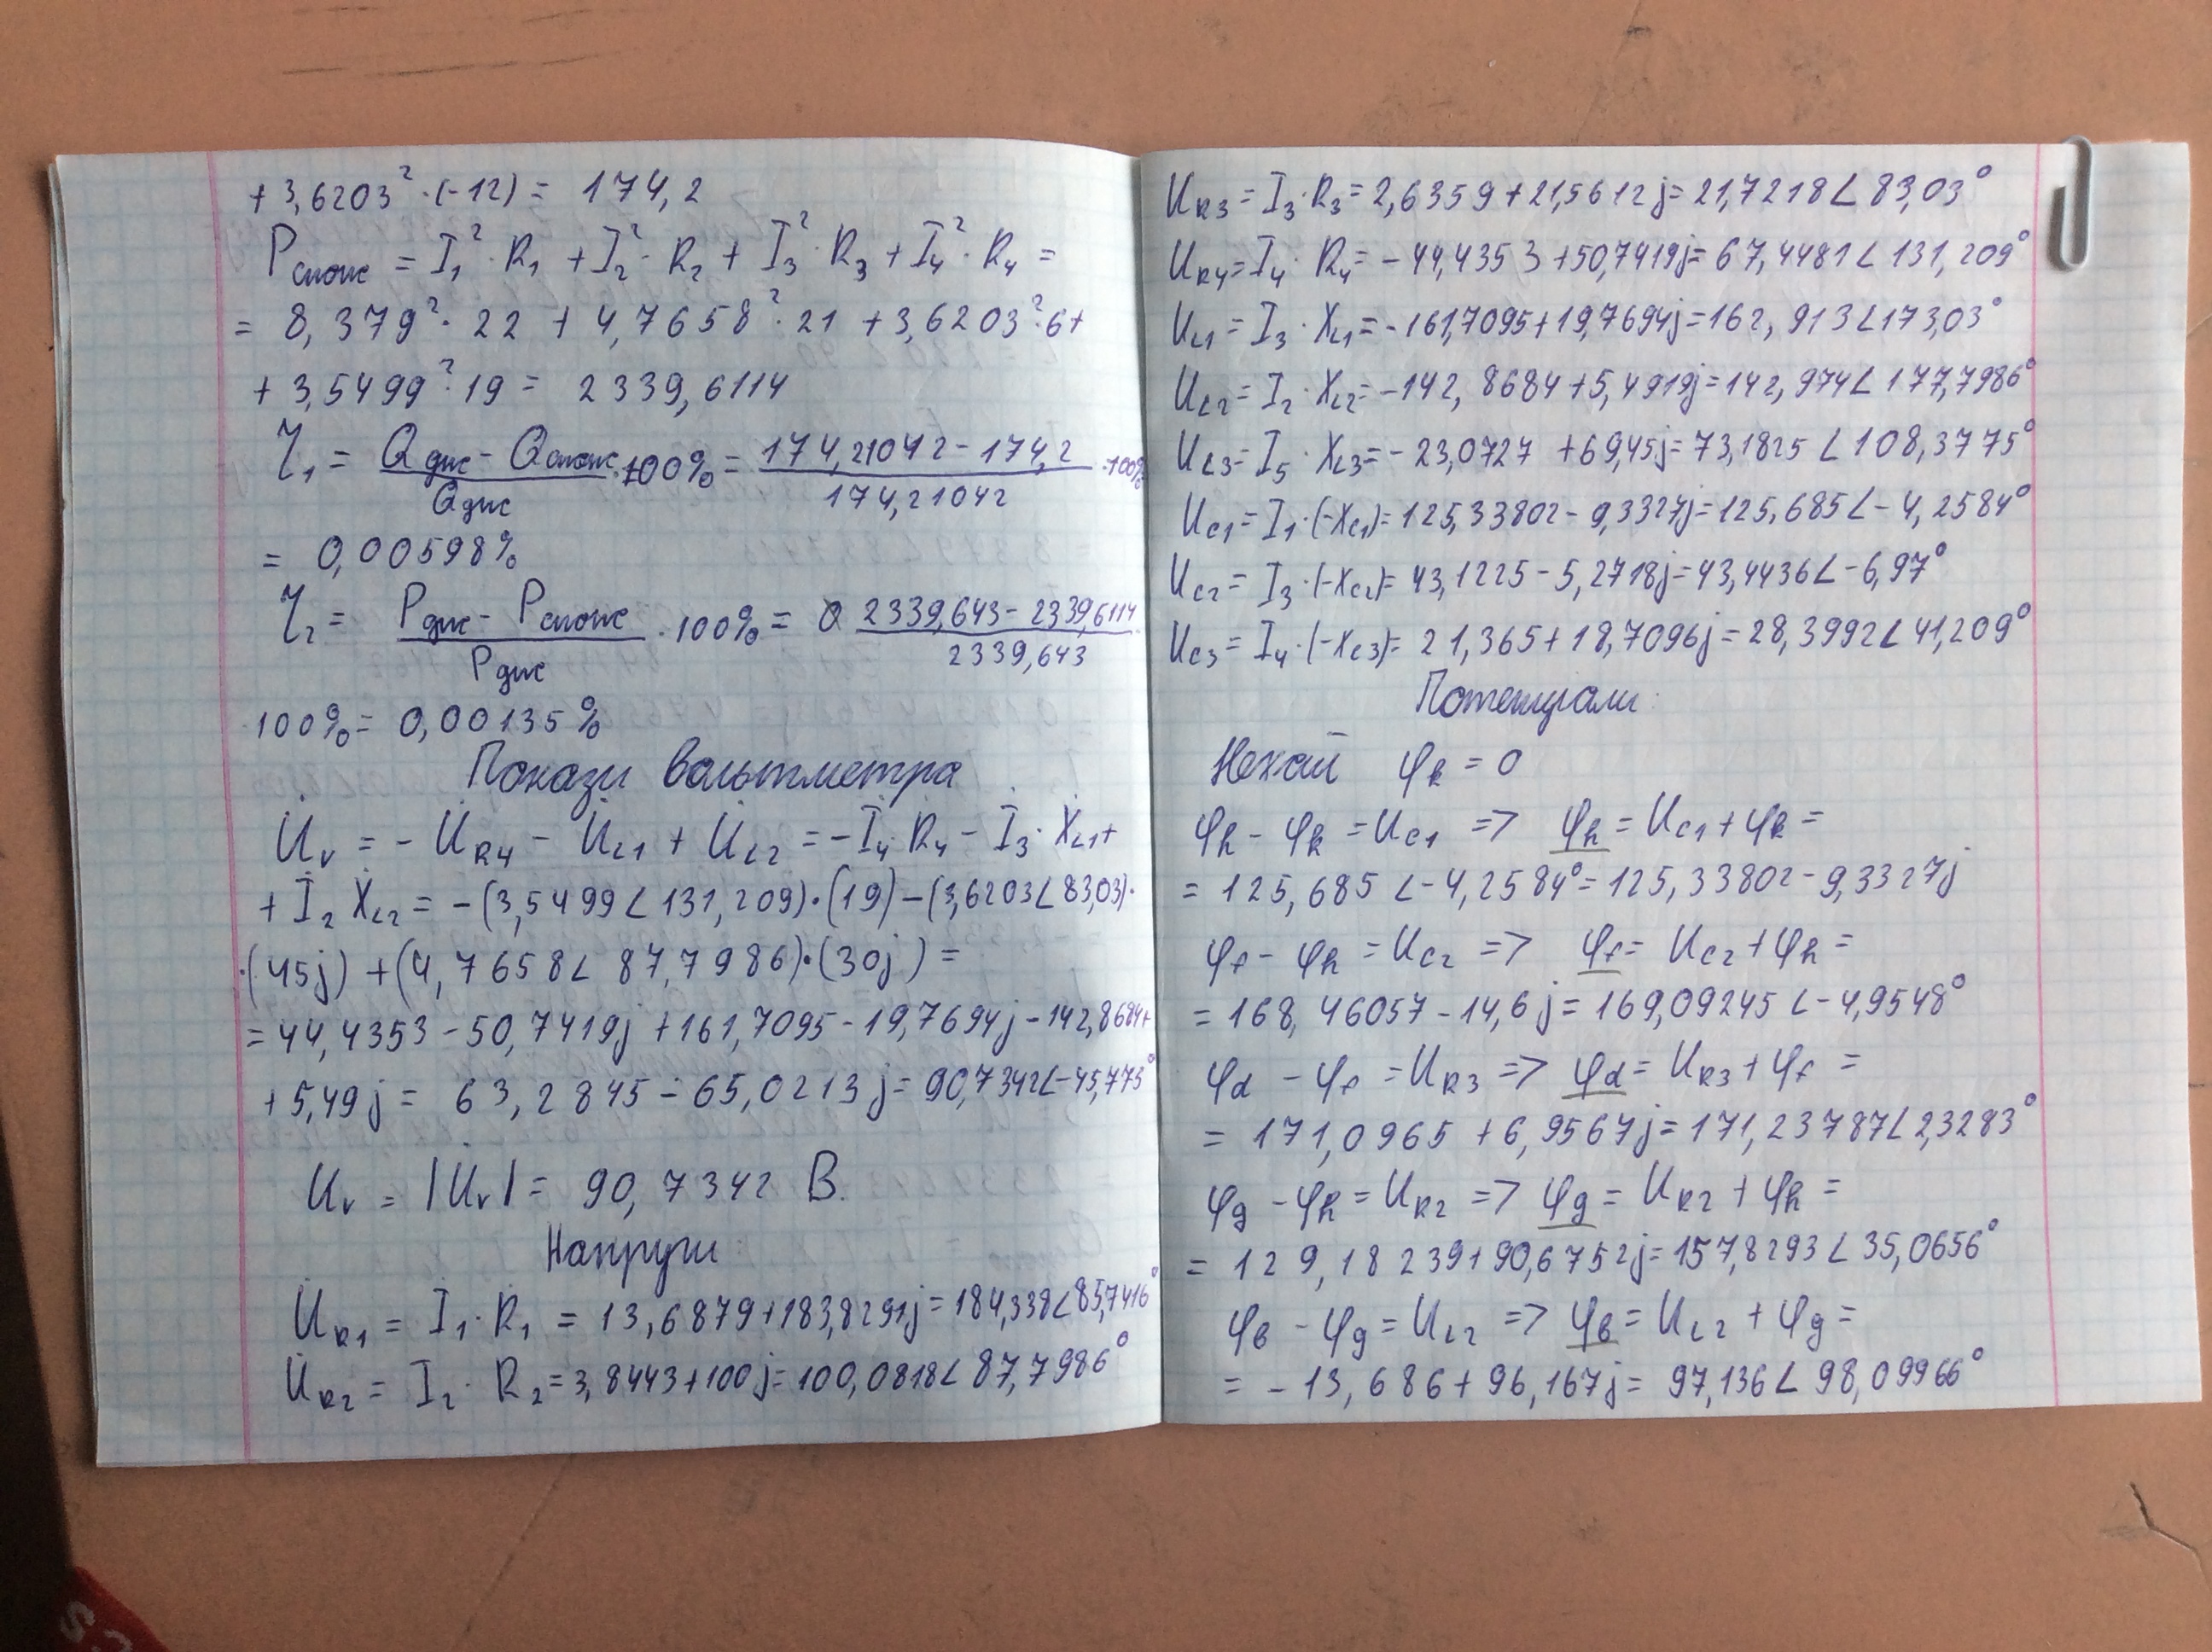 + 3,6203² · (-12) = 174,2
Pспож = I₁² · R₁ + I₂² · R₂ + I₃² · R₃ + I₄² · R₄ =
= 8,379² · 22 + 4,7658² · 21 + 3,6203² · 6 +
+ 3,5499² · 19 = 2339,6114
η₁ = (Qдж - Qспож)/Qдж · 100% = (174,21042 - 174,2)/174,21042 · 100%
= 0,00598%
η₂ = (Pдж - Pспож)/Pдж · 100% = (2339,643 - 2339,6114)/2339,643
100% = 0,00135%
Покази вольтметра
U̇v = - U̇R4 - U̇L1 + U̇L2 = - İ₄ R₄ - İ₃ · ẊL1 +
+ İ₂ ẊL2 = -(3,5499∠131,209)·(19) - (3,6203∠83,03)·
·(45j) + (4,7658∠87,7986)·(30j) =
= 44,4353 - 50,7419j + 161,7095 - 19,7694j - 142,8684 +
+ 5,49j = 63,2845 - 65,0213j = 90,7342∠-45,775°
Uv = |Uv| = 90,7342 В.
Напруги:
U̇R1 = İ₁ · R₁ = 13,6879 + 183,8291j = 184,338∠85,7416°
U̇R2 = İ₂ · R₂ = 3,8443 + 100j = 100,0818∠87,7986°
UR3 = I₃ · R₃ = 2,6359 + 21,5612j = 21,7218∠83,03°
UR4 = I₄ · R₄ = -44,4353 + 50,7419j = 67,4481∠131,209°
UL1 = I₃ · XL1 = -161,7095 + 19,7694j = 162,913∠173,03°
UL2 = I₂ · XL2 = -142,8684 + 5,4919j = 142,974∠177,7986°
UL3 = I₅ · XL3 = -23,0727 + 69,45j = 73,1825∠108,3775°
UC1 = I₁·(-XC1) = 125,33802 - 9,3327j = 125,685∠-4,2584°
UC2 = I₃·(-XC2) = 43,1225 - 5,2718j = 43,4436∠-6,97°
UC3 = I₄·(-XC3) = 21,365 + 18,7096j = 28,3992∠41,209°
Потенціали:
Нехай φk = 0
φh - φk = UC1 => φh = UC1 + φk =
= 125,685∠-4,2584° = 125,33802 - 9,3327j
φf - φh = UC2 => φf = UC2 + φh =
= 168,46057 - 14,6j = 169,09245∠-4,9548°
φd - φf = UR3 => φd = UR3 + φf =
= 171,0965 + 6,9567j = 171,23787∠2,3283°
φg - φh = UR2 => φg = UR2 + φh =
= 129,18239 + 90,6752j = 157,8293∠35,0656°
φв - φg = UL2 => φв = UL2 + φg =
= -13,686 + 96,167j = 97,136∠98,09966°